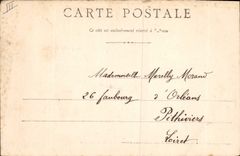 CARTE POSTALE
Ce côté est exclusivement réservé à l'Adresse
Mademoiselle Marelly Morand
26 faubourg d'Orléans
Pithiviers
Loiret